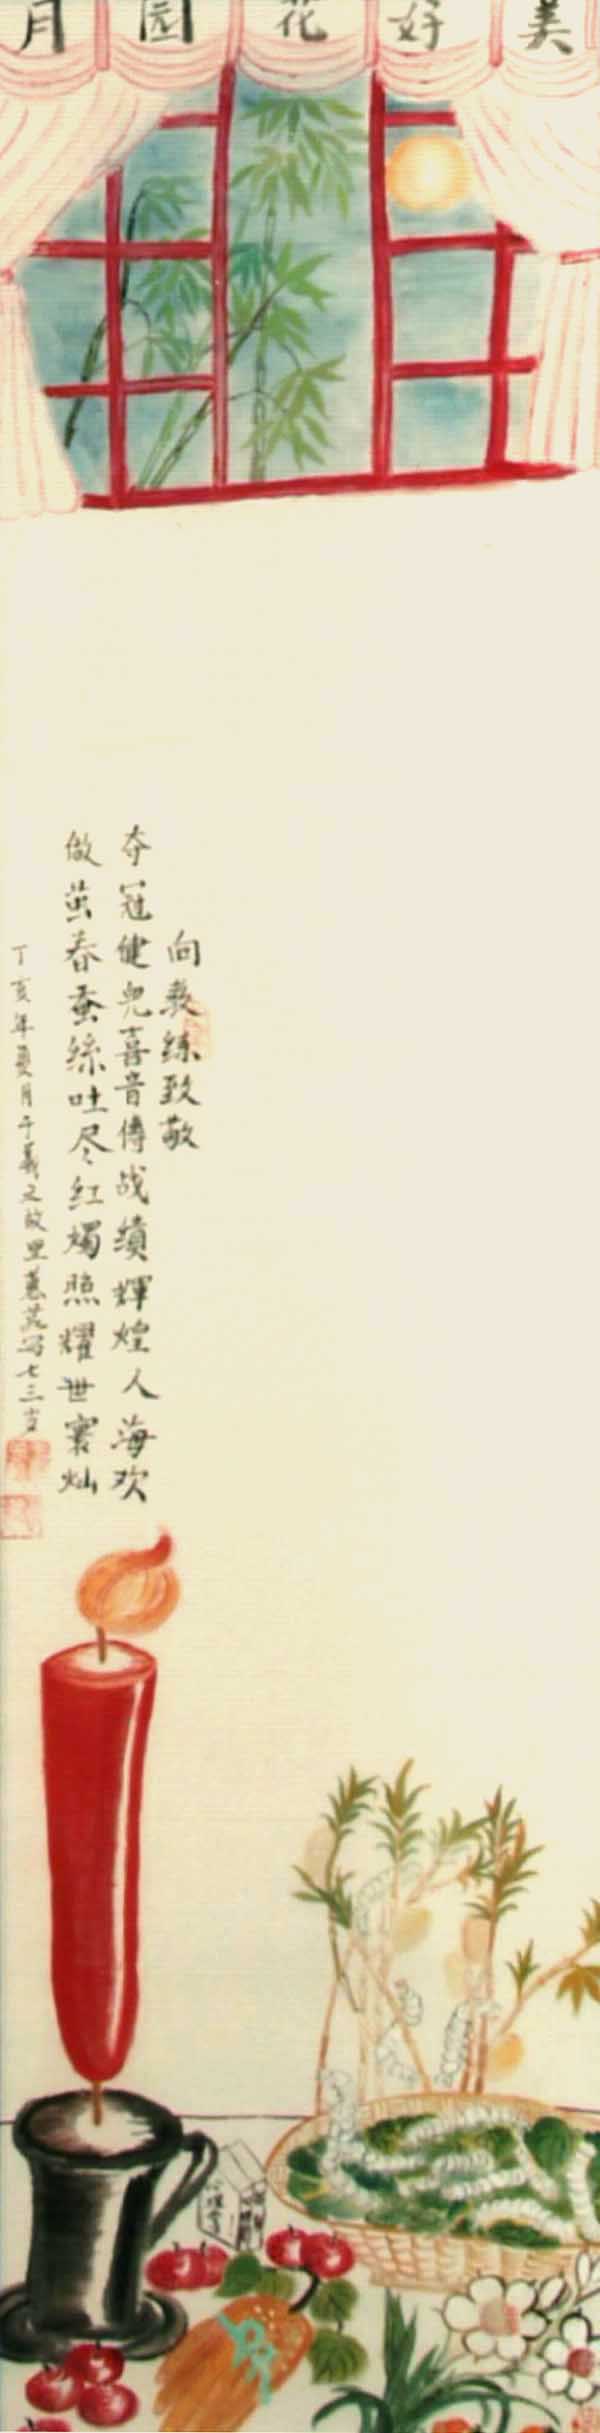 美好花园月
向教练致敬
夺冠健儿喜音傳战绩輝煌人海欢
做茧春蚕絲吐尽红燭照耀世寰灿
丁亥年夏月于羲之故里蕙芸写七三